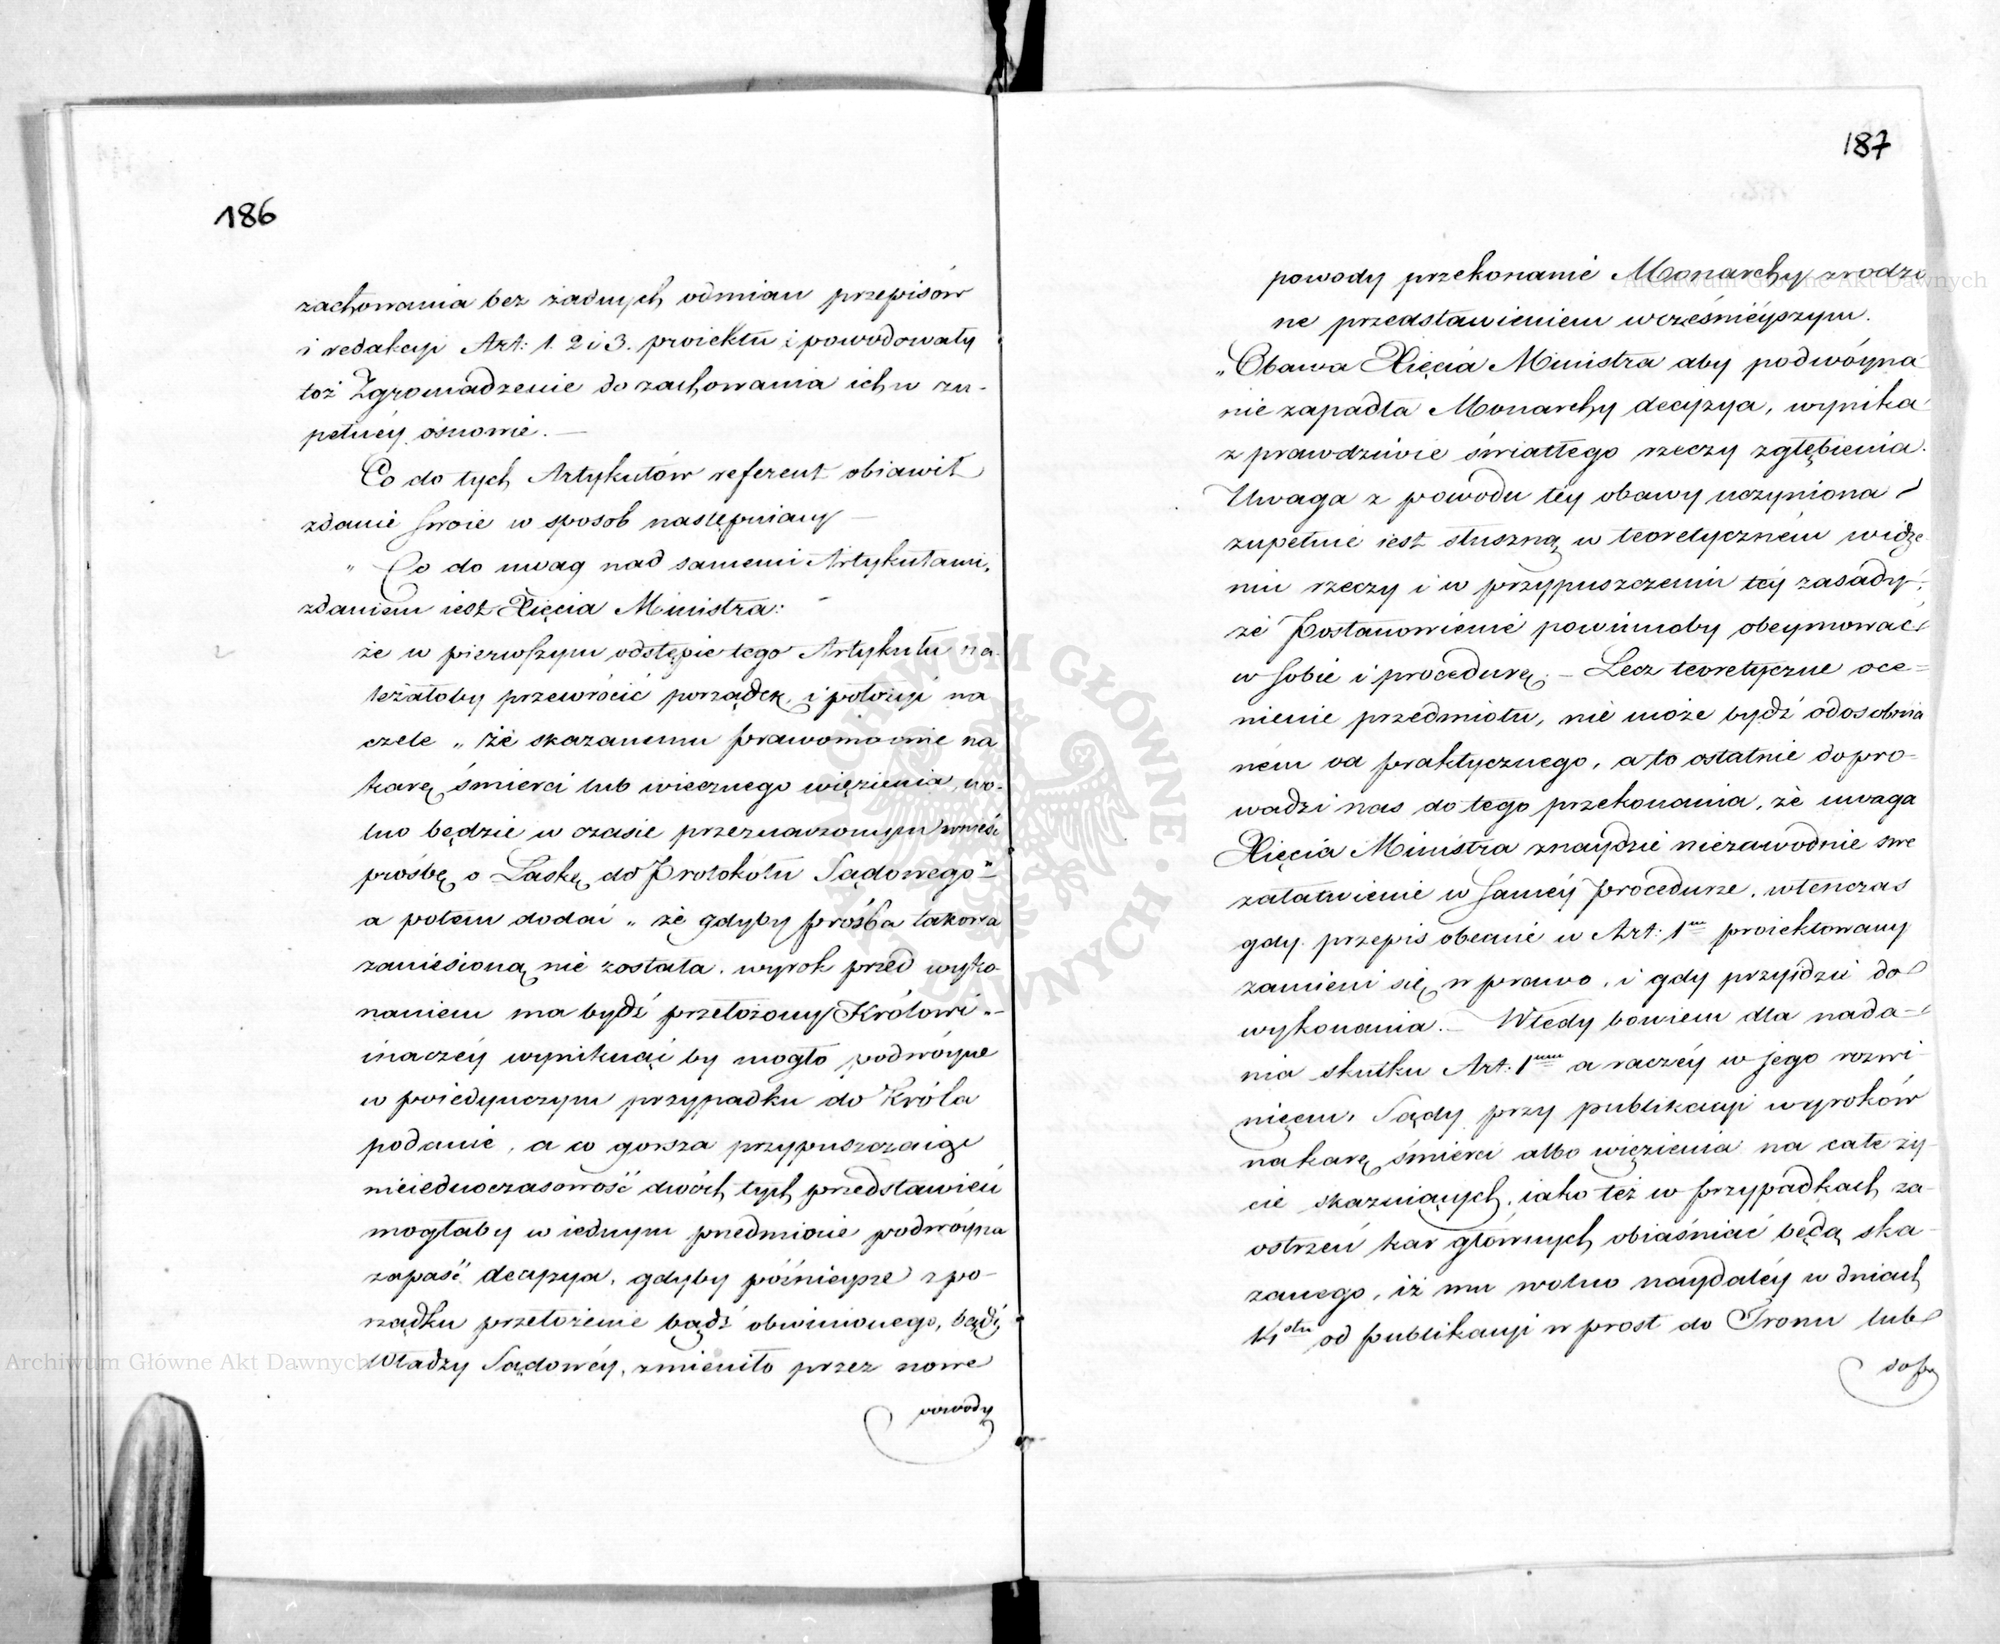 186
zachowania bez żadnych odmian przepisów
i redakcyi Art: 1. 2 i 3. proiektu i powodowały
toż Zgromadzenie do zachowania ich w zu-
pełnéy osnowie. —
Co do tych Artykułów referent obiawił
zdanie swoie w sposob następuiący —
„ Co do uwag nad samemi Artykułami,
zdaniem iest Xięcia Ministra: —
że w pierwszym odstępie tego Artykułu na-
leżałoby przewrócić porządek, i położyć na
czele „ że skazanemu prawomocnie na
karę śmierci lub wiecznego więzienia, wo-
lno będzie w czasie przeznaczonym wnieść
prośbę o Łaskę do Protokółu Sądowego" —
a potem dodać „ że gdyby prośba takowa
zaniesioną nie została, wyrok przed wyko-
naniem ma bydź przełożony Królowi „ —
inaczéy wyniknąć by mogło podwóyne
w poiedynczym przypadku do Króla
podanie, a co gorsza przypuszczaiąc
nieiednoczasowość dwóch tych przedstawień
mogłaby w iednym przedmiocie podwóyna
zapaść decyzya, gdyby późnieysze z po-
rządku przełożenie bądź obwinionego, bądź
Władzy Sądowéy, zmieniło przez nowe
powody
187
powody przekonanie Monarchy zrodzo
ne przedstawieniem wcześnieyszym.
„Obawa Xięcia Ministra aby podwóyna
nie zapadła Monarchy decyzya, wynika
z prawdziwie światłego rzeczy zgłębienia.
Uwaga z powodu téy obawy uczyniona
zupełnie iest słuszną w teoretyczném widze
niu rzeczy i w przypuszczeniu téy zasady,
że Postanowienie powinnoby obeymować
w sobie i procedurę. — Lecz teoretyczne oce-
nienie przedmiotu, nie może bydź odosobnio
ném od praktycznego, a to ostatnie dopro-
wadzi nas do tego przekonania, że uwaga
Xięcia Ministra znaydzie niezawodnie swe
załatwienie w saméy procedurze, wtenczas
gdy przepis obecnie w Art: 1m proiektowany
zamieni się w prawo, i gdy przyidzie do
wykonania. — Wtedy bowiem dla nada-
nia skutku Art: 1mu a raczéy w jego rozwi-
nięciu, Sądy przy publikacyi wyroków
na karę śmierci albo więzienia na całe ży-
cie skazuiących, iako też w przypadkach za-
ostrzeń kar głównych obiaśniać będą ska-
zanego, iż mu wolno naydaléy w dniach
14stu od publikacyi w prost do Tronu lub
do Pro
Archiwum Główne Akt Dawnych
Archiwum Główne Akt Dawnych
ARCHIWUM GŁÓWNE AKT DAWNYCH